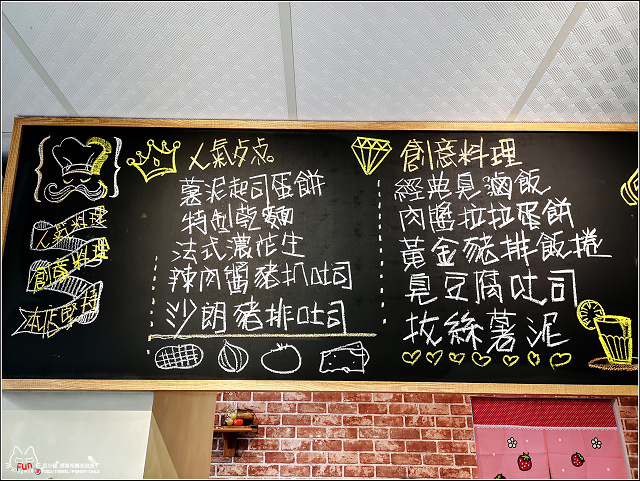 人氣料理
創意料理
本店堅持
人氣夕点
薯泥起司蛋餅
特制乾麵
法式濃花生
辣肉醬豬扒吐司
沙朗豬排吐司
創意料理
經典臭滷飯
肉醬拉拉蛋餅
黃金豬排飯捲
臭豆腐吐司
拔絲薯泥
Fun